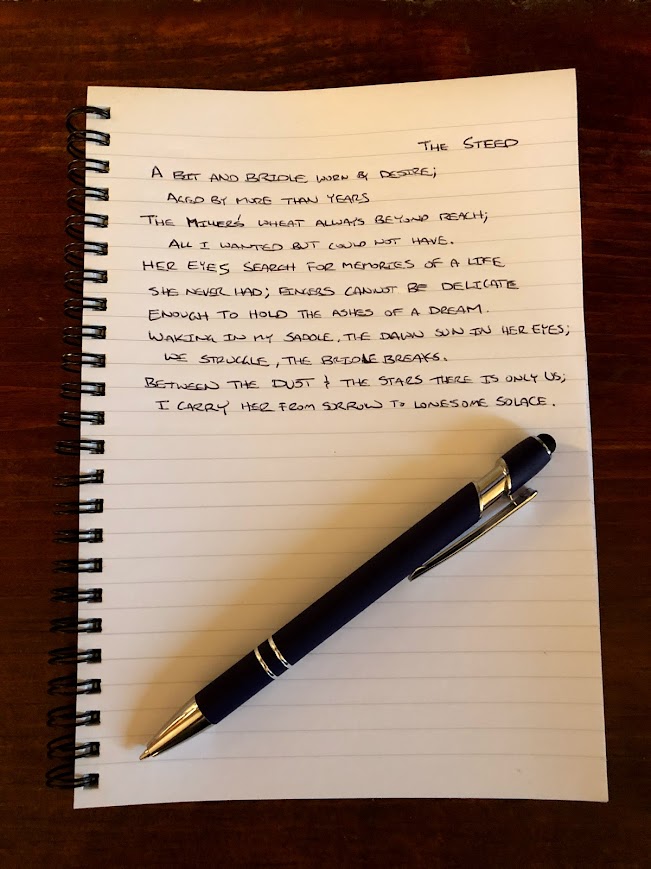 THE STEED
A BIT AND BRIDLE WORN BY DESIRE;
AGED BY MORE THAN YEARS
THE MILLER'S WHEAT ALWAYS BEYOND REACH;
ALL I WANTED BUT COULD NOT HAVE.
HER EYES SEARCH FOR MEMORIES OF A LIFE
SHE NEVER HAD; FINGERS CANNOT BE DELICATE
ENOUGH TO HOLD THE ASHES OF A DREAM.
WAKING IN MY SADDLE, THE DAWN SUN IN HER EYES;
WE STRUGGLE, THE BRIDLE BREAKS.
BETWEEN THE DUST & THE STARS THERE IS ONLY US;
I CARRY HER FROM SORROW TO LONESOME SOLACE.